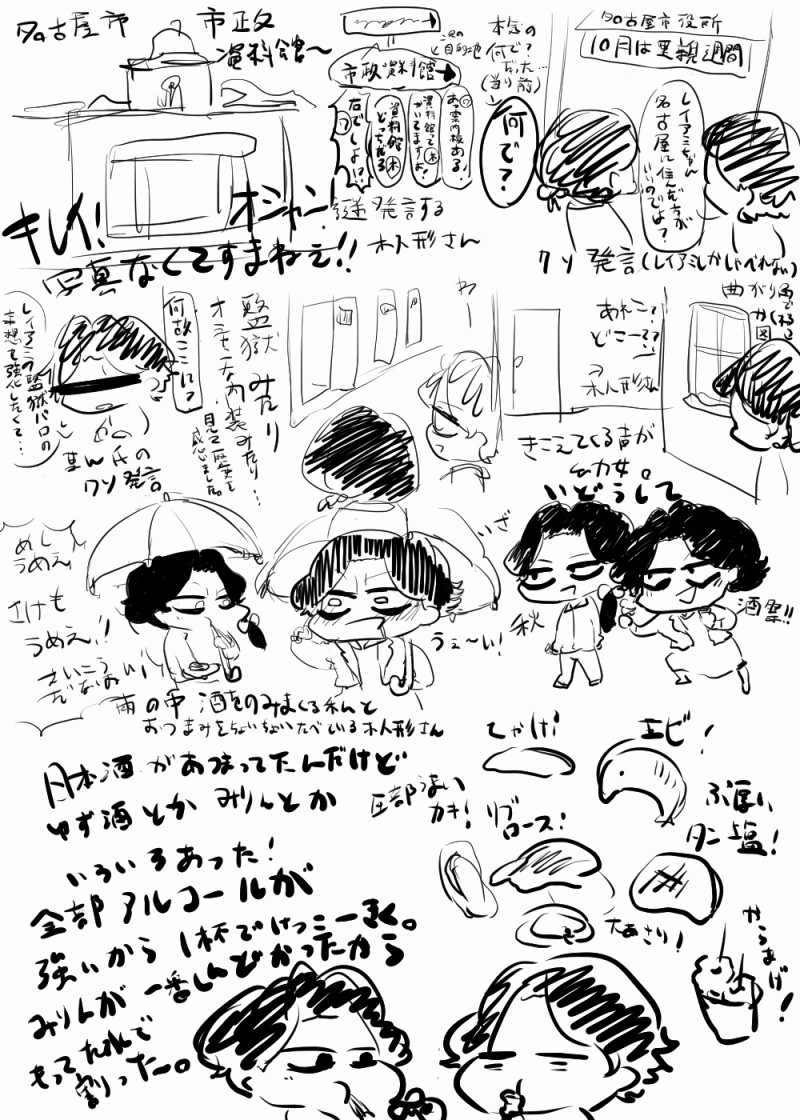 名古屋市役所
10月は里親週間
レイアミちゃん
名古屋に住んだ方が
いいのでは?
クソ発言(レイアミしかしゃべれない)
何で?
本気の
何で?
だった
(当り前)
次の
目的地
市政資料館→
あっ案内板ある!
資料館って
かいてますよ!
資料館
どっちだろ
右でしょ!?
謎発言する
木人形さん
名古屋市
市政
資料館~
キレイ!
オシャン!
写真なくてすまねえ!!
曲がり角で
かくれる
図
あれこ?
どこー??
木人形さん
きこえてくる声が
幼女。
わー
監獄みたり
オミセ内装みたり…
見て歴史を
感じました。
何故ここに?
レイアミの監獄パロの
妄想を強化したくて…
某ん氏の
クソ発言
いどうして
秋
酒祭!!
いざ
うぇ~い!
めし
うめえ!
さけも
うめえ!!
さいこう
だなおい!
雨の中 酒をのみまくる私と
おつまみをちょいちょいたべている木人形さん
日本酒があつまってたんだけど
ゆず酒とか みりんとか
いろいろあった!
全部アルコールが
強いから1杯でけっこーきく。
みりんが一番しんどかったから
もってた水で
割った~。
しゃけ!
エビ!
ぶ厚い
タン塩!
圧部うまい
カキ!
リブ
ロース!
大あさり!
からあげ!